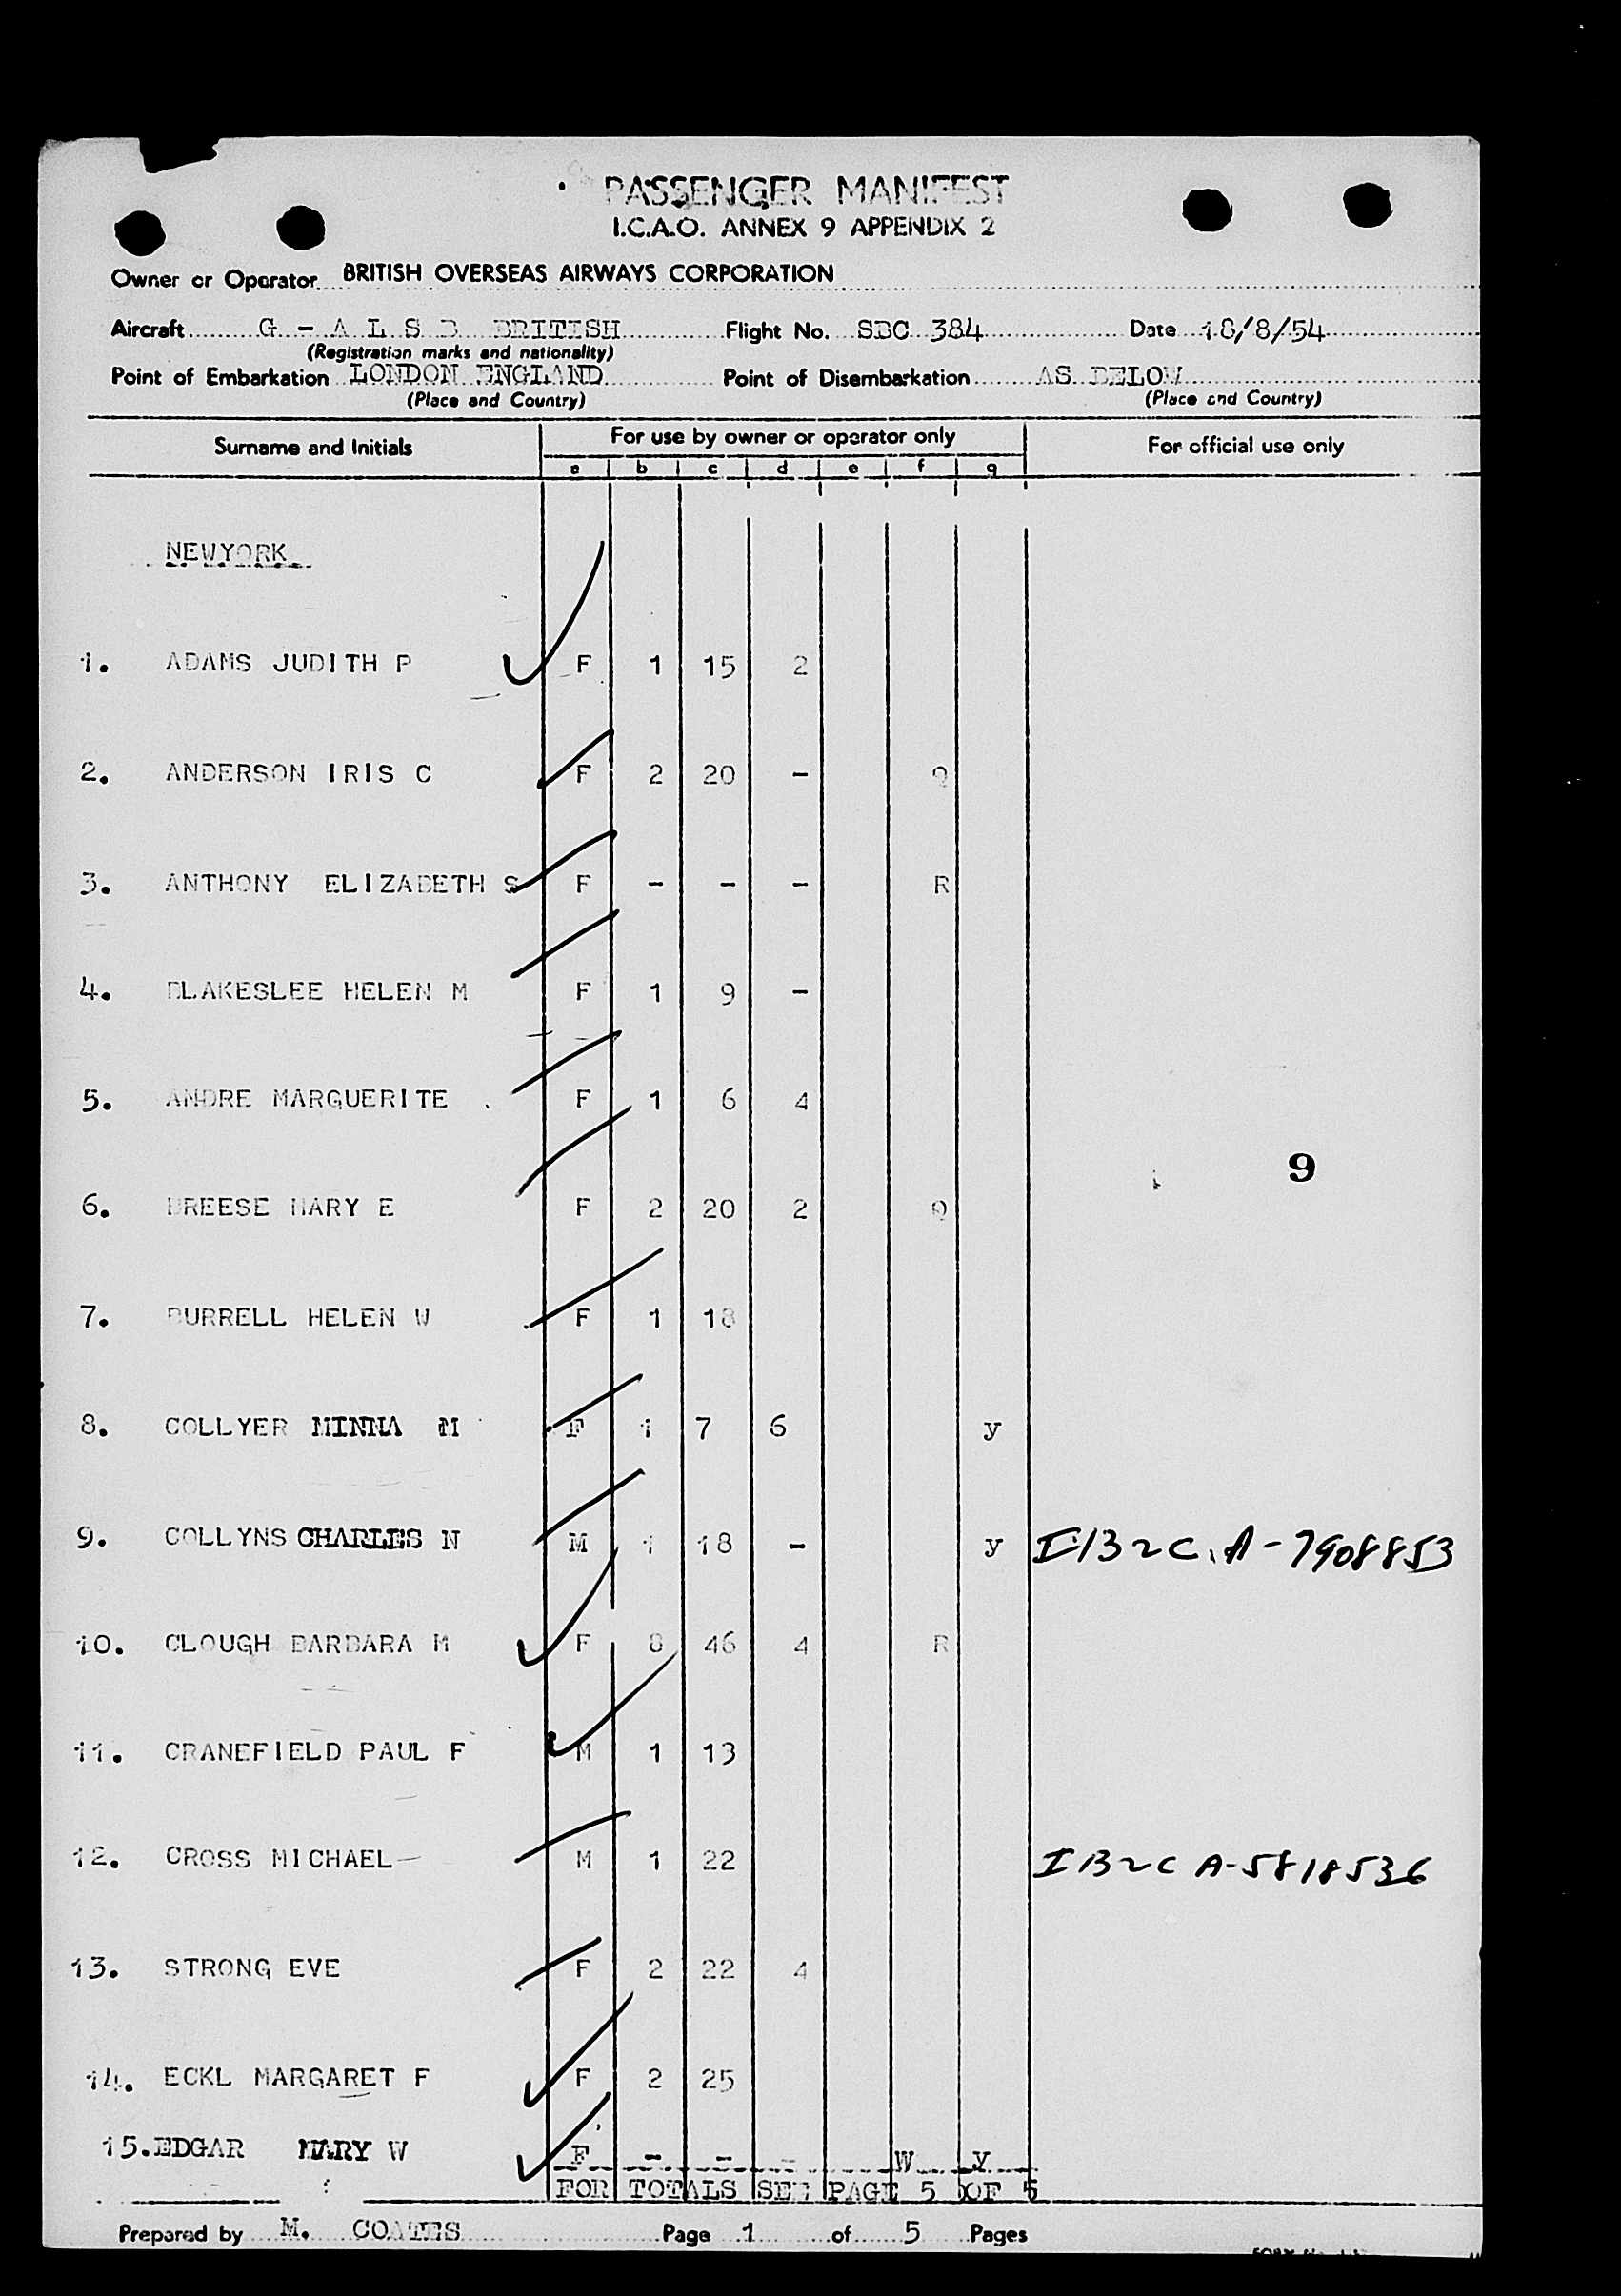 PASSENGER MANIFEST
I.C.A.O. ANNEX 9 APPENDIX 2
Owner or Operator BRITISH OVERSEAS AIRWAYS CORPORATION
Aircraft G - A L S B BRITISH Flight No. SBC 384 Date 18/8/54
(Registration marks and nationality)
Point of Embarkation LONDON ENGLAND Point of Disembarkation AS BELOW
(Place and Country) (Place and Country)
Surname and Initials For use by owner or operator only For official use only
a b c d e f g
NEWYORK
1. ADAMS JUDITH P F 1 15 2
2. ANDERSON IRIS C F 2 20 - Q
3. ANTHONY ELIZABETH S F - - - R
4. BLAKESLEE HELEN M F 1 9 -
5. ANDRE MARGUERITE F 1 6 4
9
6. BREESE MARY E F 2 20 2 Q
7. BURRELL HELEN W F 1 18
8. COLLYER MINNA M F 1 7 6 y
9. COLLYNS CHARLES N M 1 18 - y I-132C. A-7908853
10. CLOUGH BARBARA M F 8 46 4 R
11. CRANEFIELD PAUL F M 1 13
12. CROSS MICHAEL M 1 22 I 132C A-5818536
13. STRONG EVE F 2 22 4
14. ECKL MARGARET F F 2 25
15. EDGAR MARY W F - - - W y
FOR TOTALS SEE PAGE 5 OF 5
Prepared by M. COATES Page 1 of 5 Pages